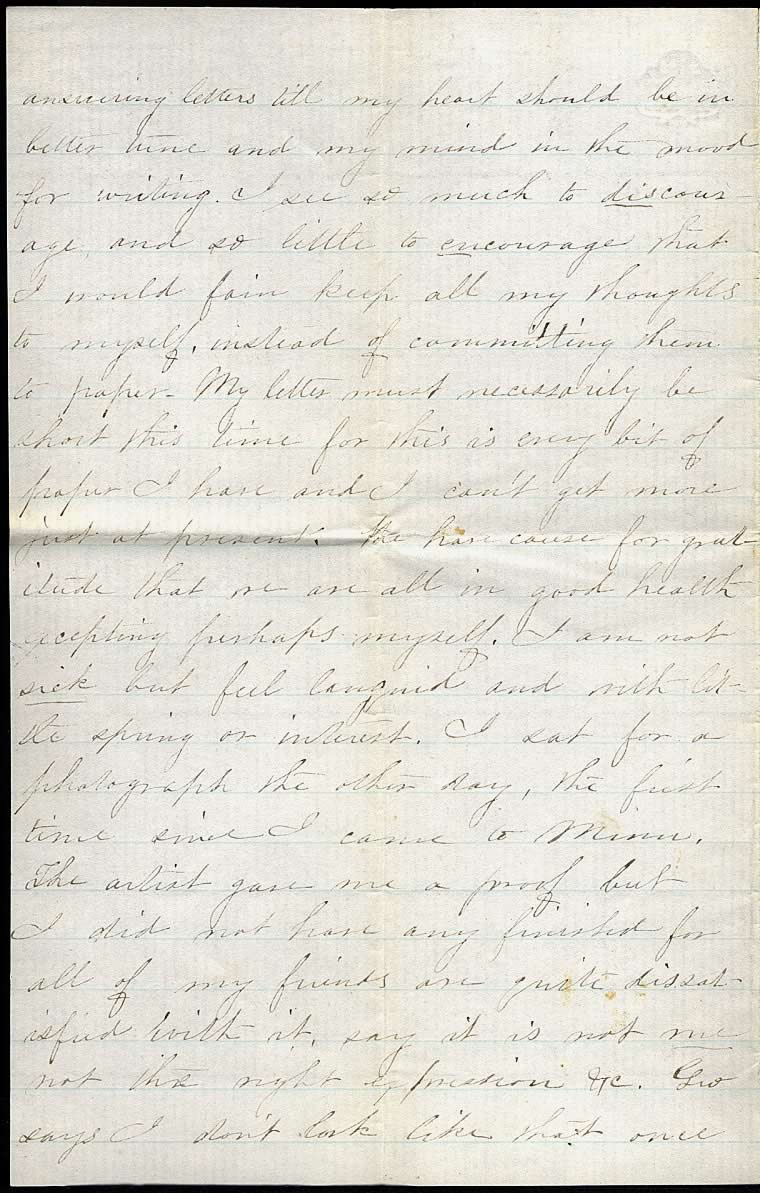 answering letters till my heart should be in
better tune and my mind in the mood
for writing. I see so much to discour-
age, and so little to encourage that
I would fain keep all my thoughts
to myself, instead of committing them
to paper- My letter must necessarily be
short this time for this is every bit of
paper I have and I can't get more
just at present. We have cause for grat-
itude that we are all in good health
excepting perhaps myself. I am not
sick but feel languid and with lit-
tle spring or interest. I sat for a
photograph the other day, the first
time since I came to Minn.
The artist gave me a proof but
I did not have any finished for
all of my friends are quite dissat-
isfied with it, say it is not me
not the right expression &c. Geo
says I don't look like that once